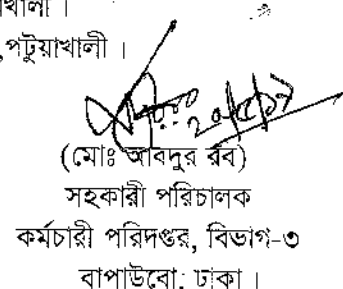 খালী ।
,পটুয়াখালী ।
(মোঃ আবদুর রব)
সহকারী পরিচালক
কর্মচারী পরিদপ্তর, বিভাগ-৩
বাপাউবো; ঢাকা ।